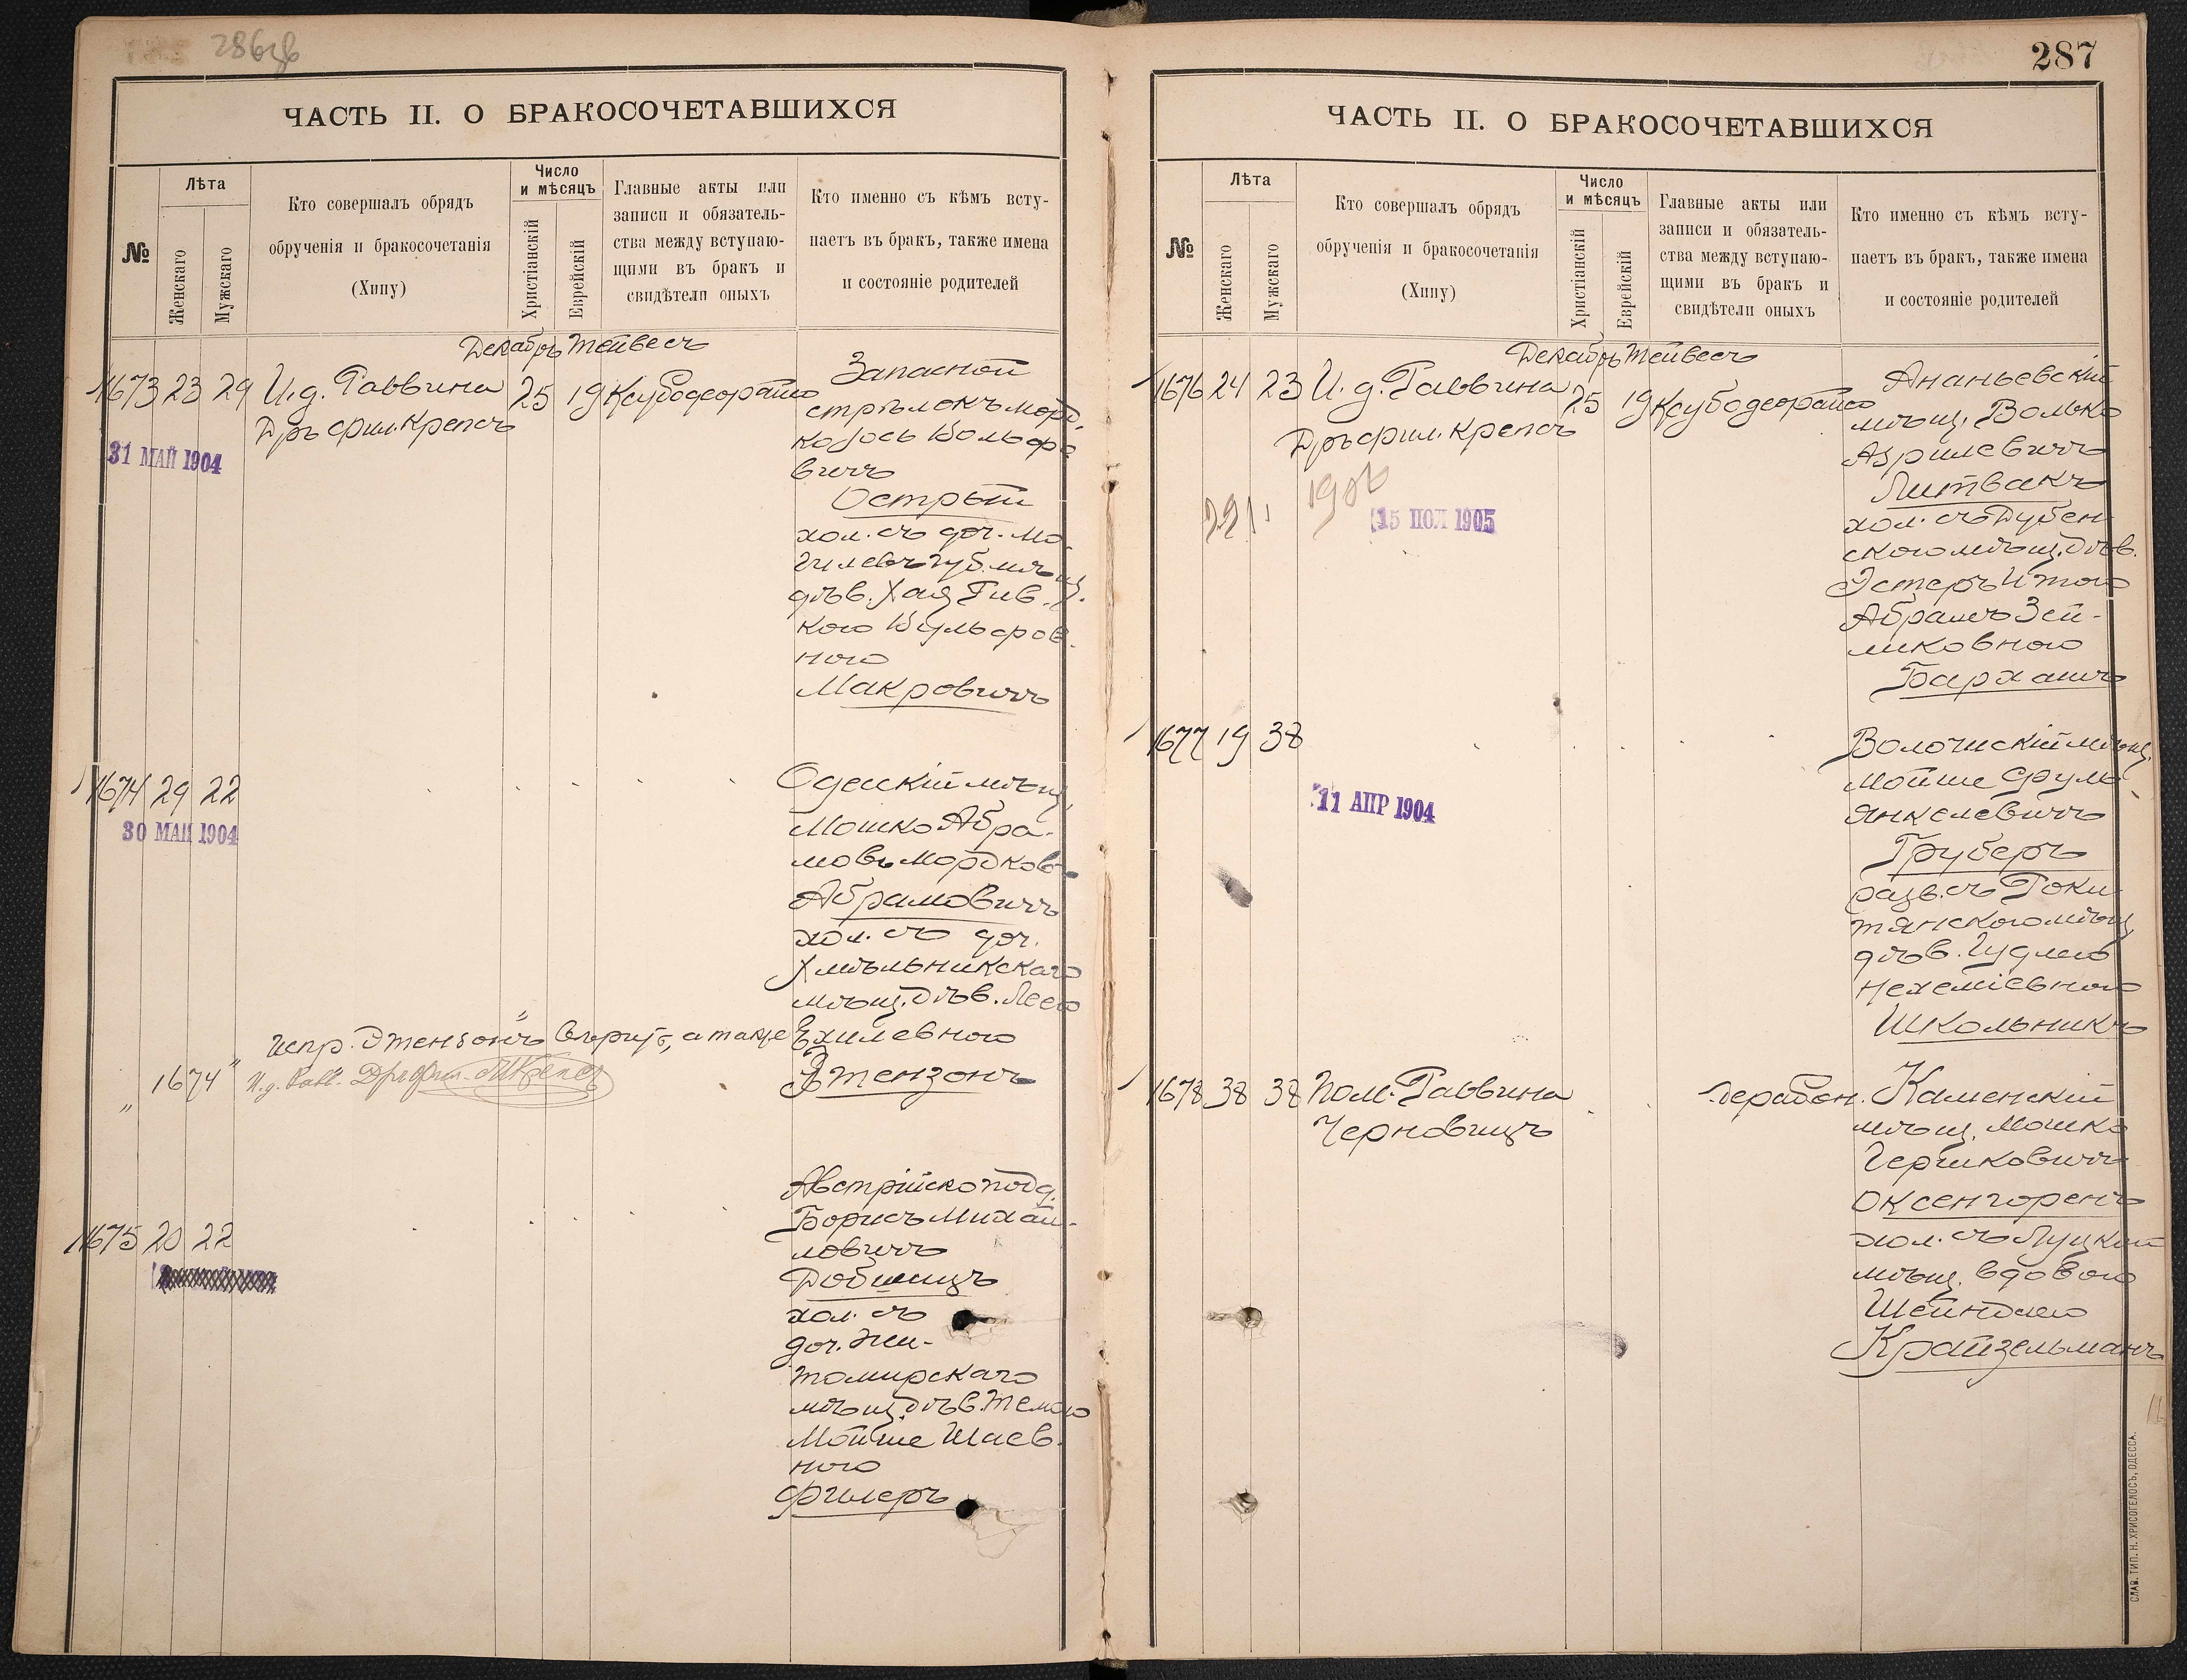 286
ЧАСТЬ II. О БРАКОСОЧЕТАВШИХСЯ
№
Лѣта
Женскаго
Мужскаго
Кто совершалъ обрядъ
обрученія и бракосочетанія
(Хипу)
Число
и мѣсяцъ
Христіанскій
Еврейскій
Главные акты или
записи и обязатель-
ства между вступаю-
щими въ бракъ и
свидѣтели оныхъ
Кто именно съ кѣмъ всту-
паетъ въ бракъ, также имена
и состояніе родителей
Декабрь Тейвесъ
1673 23 29 И. д. Раввина 25 19 Ксубодеорайсо
Дръ фил. Крепсъ
31 МАЙ 1904
Запасной
стрѣлокъ Морд-
ко Іось Вольфо
вичъ
Острый
хол. съ доч. Мо-
гилевъ губ. мѣщ.
дѣв. Хая Рив-
кою Вульфов-
ною
Макровичъ
1674 29 22
30 МАЙ 1904
Одесскій мѣщ.
Мошко Абра-
мовъ Мордков-
Абрамовичъ
хол. съ доч.
Хмѣльникскаго
мѣщ. дѣв. Леею
Ехилевною
Этензонъ
Испр. „Этензонъ“ вѣрить, а также
„1674“ И. д. Равв. Дръ фил. Крепсъ
1675 20 22
Австрійско подд.
Борисъ Михай-
ловичъ
Добшицъ
хол. съ
доч. Жи-
томирскаго
мѣщ. дѣв. Темою
Мойше Шаев-
ною
Филеръ
287
ЧАСТЬ II. О БРАКОСОЧЕТАВШИХСЯ
№
Лѣта
Женскаго
Мужскаго
Кто совершалъ обрядъ
обрученія и бракосочетанія
(Хипу)
Число
и мѣсяцъ
Христіанскій
Еврейскій
Главные акты или
записи и обязатель-
ства между вступаю-
щими въ бракъ и
свидѣтели оныхъ
Кто именно съ кѣмъ всту-
паетъ въ бракъ, также имена
и состояніе родителей
Декабрь Тейвесъ
1676 24 23 И. д. Раввина 25 19 Ксубодеорайсо
Дръ фил. Крепсъ
1906
221
15 ІЮЛ 1905
Ананьевскій
мѣщ. Волько
Азрилевичъ
Литвакъ
хол. съ Дубен-
скою мѣщ. дѣв.
Эстеръ Итою
Абрамъ Зей-
ликовною
Бархашъ
1677 19 38
11 АПР 1904
Волочискій мѣщ.
Мойше Сруль
Янкелевичъ
Груберъ
разв. съ Роки-
тянскою мѣщ.
дѣв. Гудлею
Нехеміевною
Школьникъ
1678 38 38 Пом. Раввина
Черновицъ
Дерабон.
Каменскій
мѣщ. Мошко
Гершковичъ
Оксенгоренъ
хол. съ Луцкой
мѣщ. вдовою
Шейндлею
Крайзельманъ
СЛАВ. ТИП. Н. ХРИСОГЕЛОСЪ, ОДЕССА.